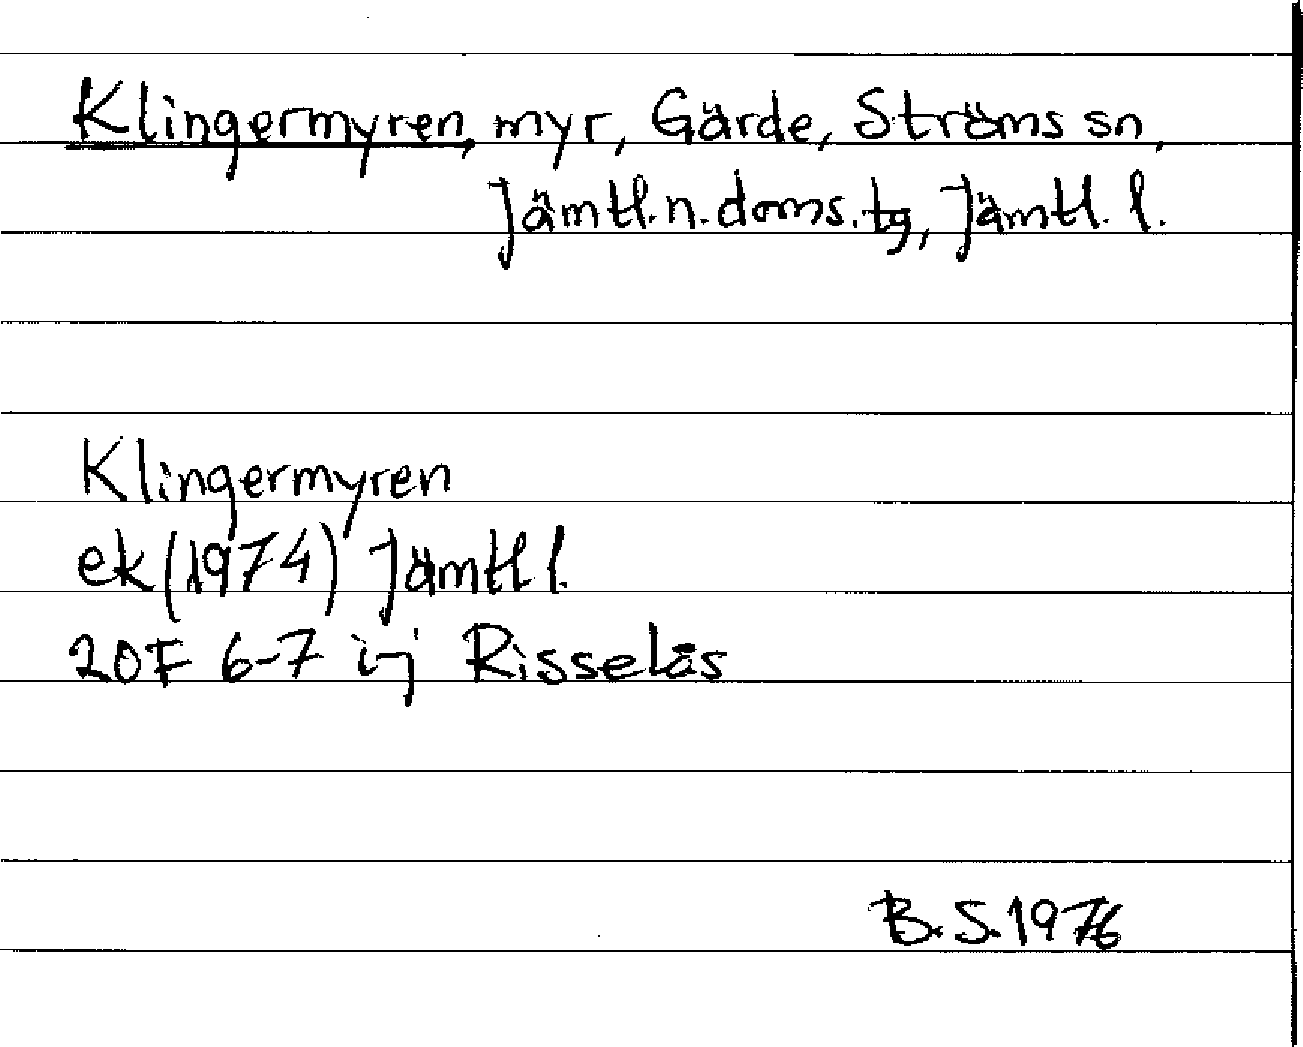 Klingermyren, myr, Gärde, Ströms sn,
Jämtl. n. doms. tg, Jämtl. l.
Klingermyren
ek (1974) Jämtl l.
20F 6-7 i-j Risselås
B. S. 1976